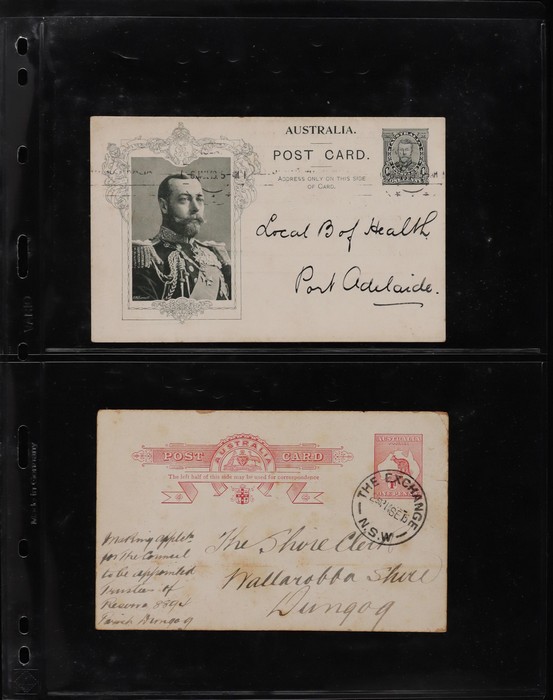 AUSTRALIA.
POST CARD.
ADDRESS ONLY ON THIS SIDE
OF CARD.
Local B of Health
Port Adelaide.
POST CARD
AUSTRALIA
The left half of this side may be used for correspondence
THE EXCHANGE
N.S.W
The Shire Clerk
Wallarobba Shire
Dungog
for the Council
to be appointed
Trustees of
Dungog
Made in Germany